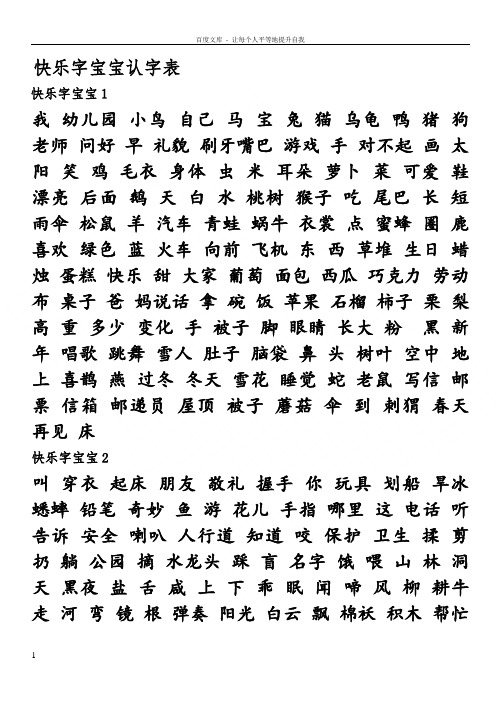 百度文库 - 让每个人平等地提升自我
快乐字宝宝认字表
快乐字宝宝1
我 幼儿园 小鸟 自己 马 宝 兔 猫 乌龟 鸭 猪 狗
老师 问好 早 礼貌 刷牙嘴巴 游戏 手 对不起 画 太
阳 笑 鸡 毛衣 身体 虫 米 耳朵 萝卜 菜 可爱 鞋
漂亮 后面 鹅 天 白 水 桃树 猴子 吃 尾巴 长 短
雨伞 松鼠 羊 汽车 青蛙 蜗牛 衣裳 点 蜜蜂 圈 鹿
喜欢 绿色 蓝 火车 向前 飞机 东 西 草堆 生日 蜡
烛 蛋糕 快乐 甜 大家 葡萄 面包 西瓜 巧克力 劳动
布 桌子 爸 妈说话 拿 碗 饭 苹果 石榴 柿子 栗 梨
高 重 多少 变化 手 被子 脚 眼睛 长大 粉 黑 新
年 唱歌 跳舞 雪人 肚子 脑袋 鼻 头 树叶 空中 地
上 喜鹊 燕 过冬 冬天 雪花 睡觉 蛇 老鼠 写信 邮
票 信箱 邮递员 屋顶 被子 蘑菇 伞 到 刺猬 春天
再见 床
快乐字宝宝2
叫 穿衣 起床 朋友 敬礼 握手 你 玩具 划船 旱冰
蟋蟀 铅笔 奇妙 鱼 游 花儿 手指 哪里 这 电话 听
告诉 安全 喇叭 人行道 知道 咬 保护 卫生 揉 剪
扔 躺 公园 摘 水龙头 踩 盲 名字 饿 喂 山 林 洞
天 黑夜 盐 舌 咸 上 下 乖 眠 闻 啼 风 柳 耕牛
走 河 弯 镜 根 弹奏 阳光 白云 飘 棉袄 积木 帮忙
1